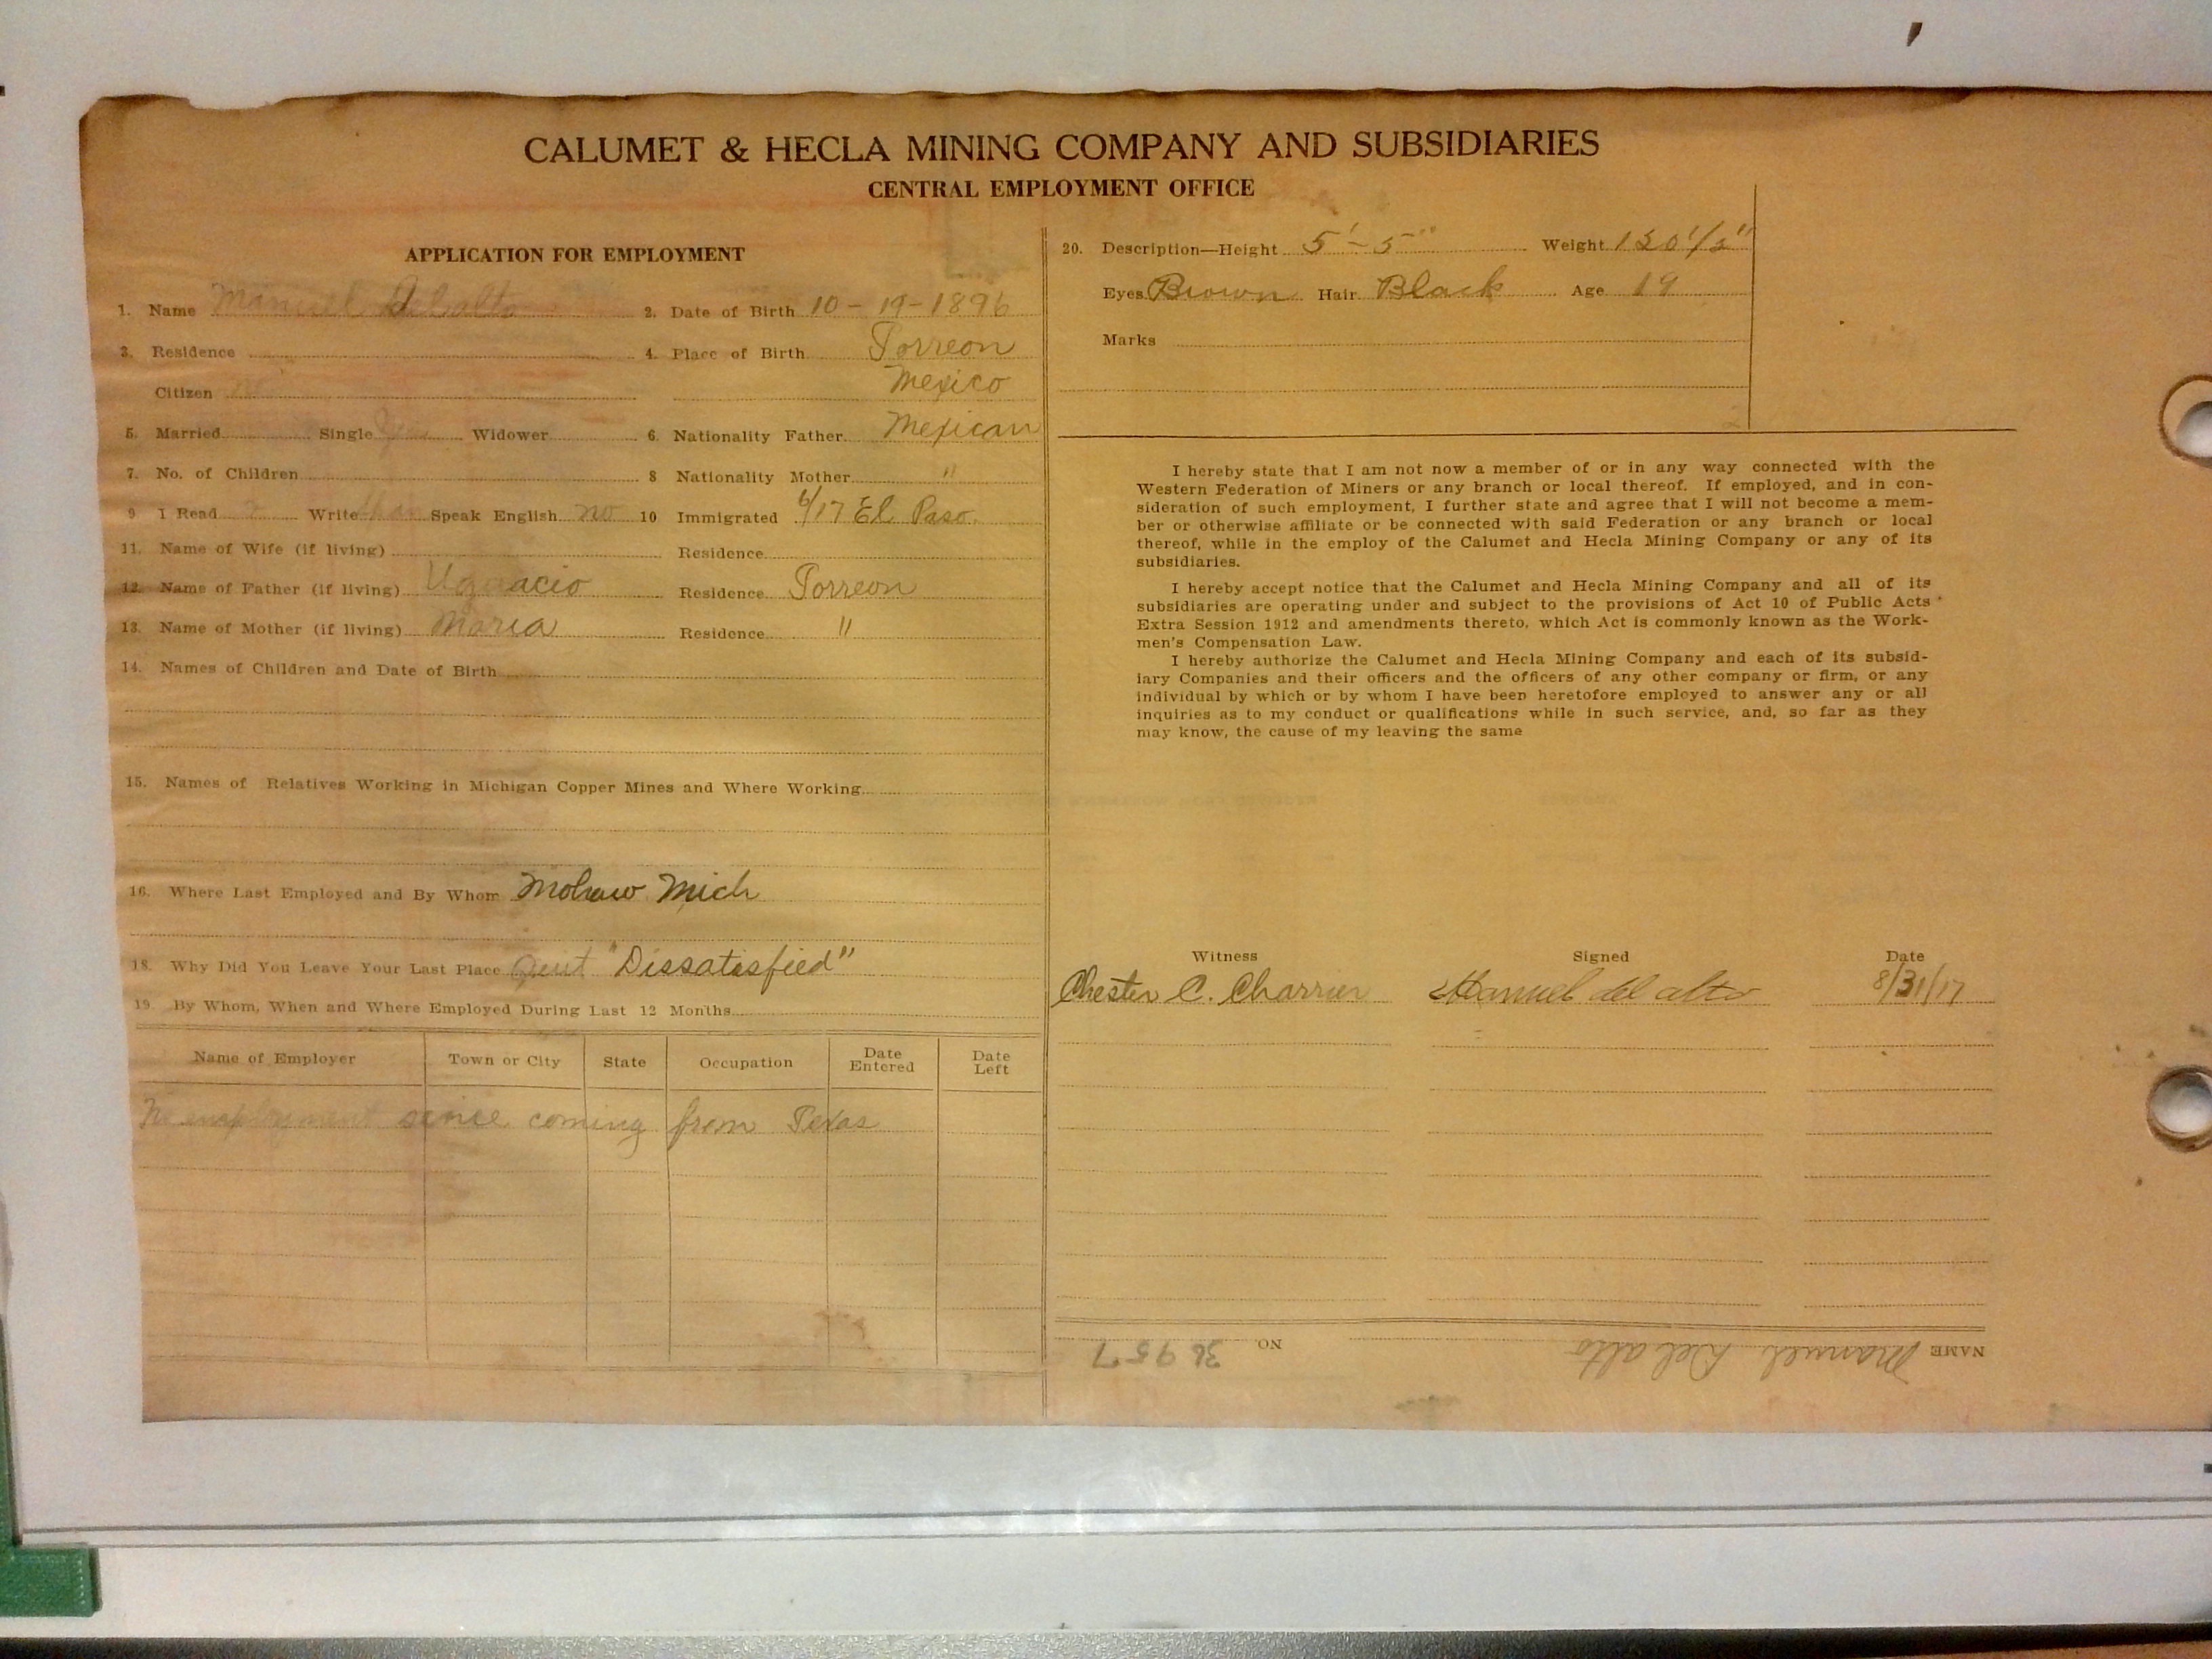 CALUMET & HECLA MINING COMPANY AND SUBSIDIARIES
CENTRAL EMPLOYMENT OFFICE
APPLICATION FOR EMPLOYMENT
1. Name Manuel Delalto 2. Date of Birth 10-19-1896
3. Residence 4. Place of Birth Torreon
Citizen Mexico
5. Married Single Yes Widower 6. Nationality Father Mexican
7. No. of Children 8 Nationality Mother "
9 I Read Write Speak English no 10 Immigrated 6/17 El Paso.
11. Name of Wife (if living) Residence
12. Name of Father (if living) Ugnacio Residence Torreon
13. Name of Mother (if living) Maria Residence "
14. Names of Children and Date of Birth
15. Names of Relatives Working in Michigan Copper Mines and Where Working
16. Where Last Employed and By Whom Mohaw Mich
18. Why Did You Leave Your Last Place Quit "Dissatisfied"
19. By Whom, When and Where Employed During Last 12 Months
Name of Employer Town or City State Occupation Date Entered Date Left
No employment since coming from Texas
20. Description—Height 5'-5" Weight 130 1/2"
Eyes Brown Hair Black Age 19
Marks
I hereby state that I am not now a member of or in any way connected with the
Western Federation of Miners or any branch or local thereof. If employed, and in con-
sideration of such employment, I further state and agree that I will not become a mem-
ber or otherwise affiliate or be connected with said Federation or any branch or local
thereof, while in the employ of the Calumet and Hecla Mining Company or any of its
subsidiaries.
I hereby accept notice that the Calumet and Hecla Mining Company and all of its
subsidiaries are operating under and subject to the provisions of Act 10 of Public Acts
Extra Session 1912 and amendments thereto, which Act is commonly known as the Work-
men's Compensation Law.
I hereby authorize the Calumet and Hecla Mining Company and each of its subsid-
iary Companies and their officers and the officers of any other company or firm, or any
individual by which or by whom I have been heretofore employed to answer any or all
inquiries as to my conduct or qualifications while in such service, and, so far as they
may know, the cause of my leaving the same
Witness Signed Date
Chester C. Charrier Manuel del alto 8/31/17
NAME Manuel Delalto NO. 36957